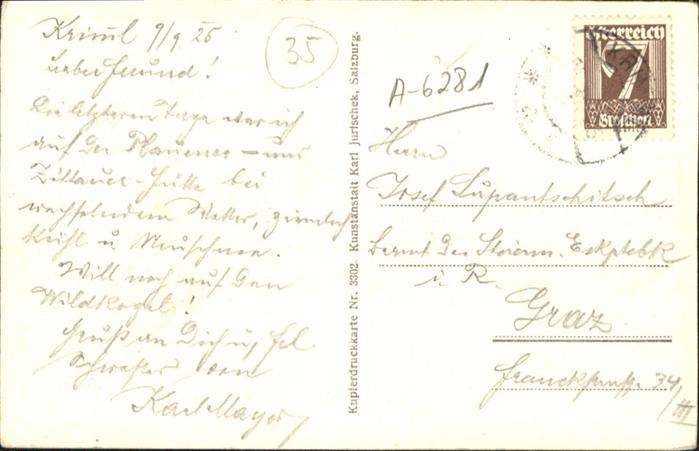 Kriml 9/9 25
Lieber Freund!
Die letzteren Tage war ich
auf der Plauener- und
Zittauer-Hütte bei
wechselndem Wetter, ziemlich
kühl u. Neuschnee.
Will noch auf den
Wildkogel!
Gruß an Dich u. Frl.
Schwester von
Karl Mayer
35
A-6281
Kupferdruckkarte Nr. 3302 Kunstanstalt Karl Jurischek, Salzburg.
Österreich
7
Groschen
Herrn
Josef Lupantschitsch
Beamt der Steierm.
i. R.
Graz
34/III